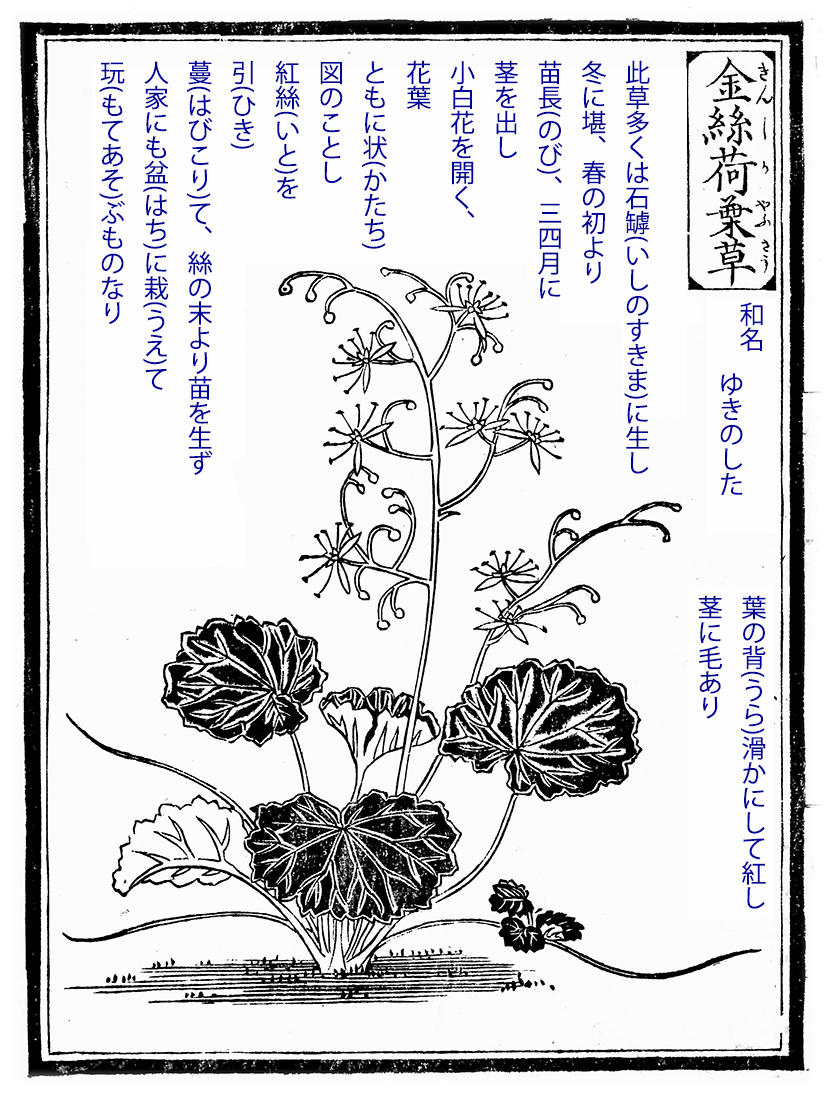 金絲荷葉草
きんしかやふさう
和名 ゆきのした
葉の背(うら)滑かにして紅し
茎に毛あり
此草多くは石罅(いしのすきま)に生し
冬に堪、春の初より
苗長(のび)、三四月に
茎を出し
小白花を開く、
花葉
ともに状(かたち)
図のことし
紅絲(いと)を
引(ひき)
蔓(はびこり)て、絲の末より苗を生ず
人家にも盆(はち)に栽(うえ)て
玩(もてあそ)ぶものなり